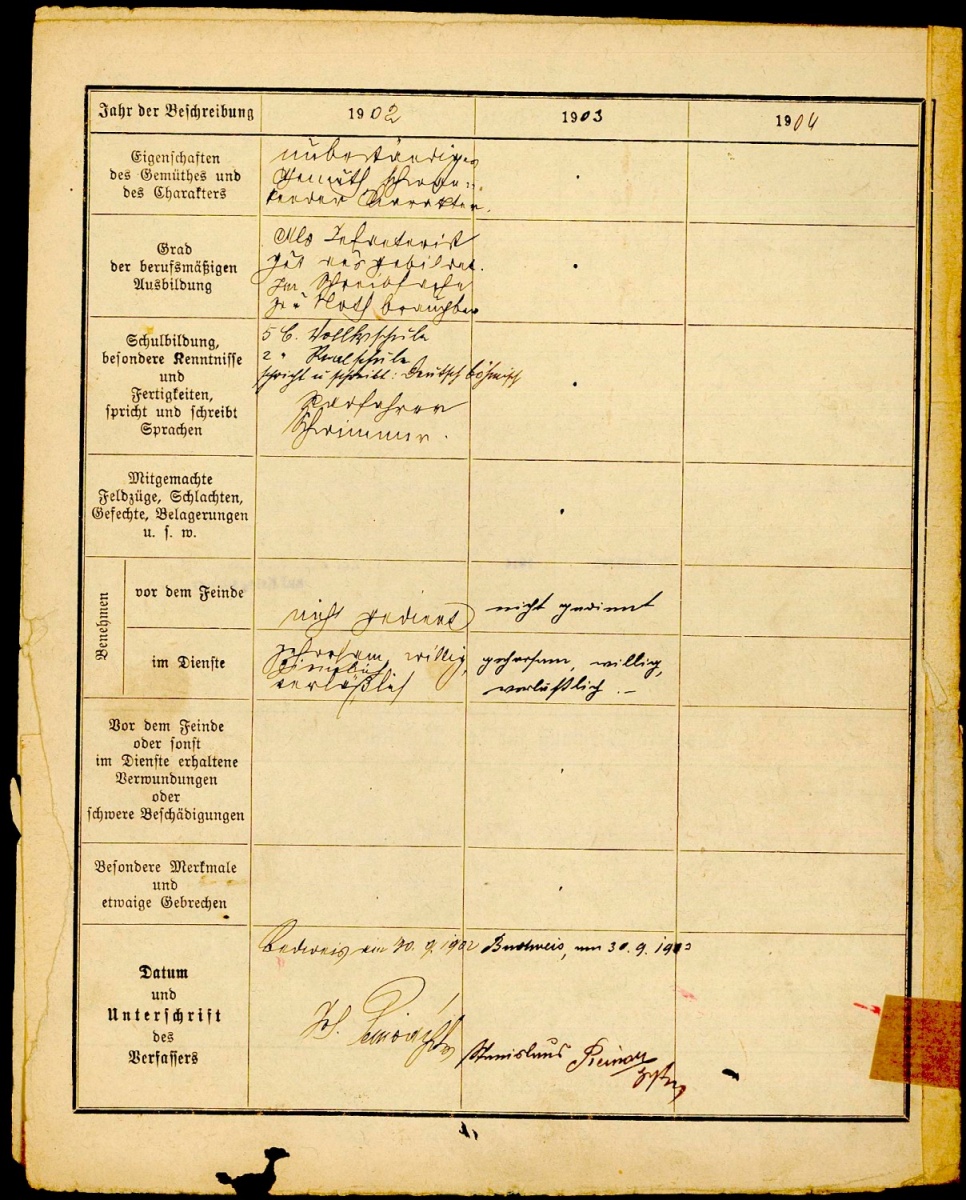 Jahr der Beschreibung 1902 1903 1904
Eigenschaften
des Gemüthes und
des Charakters
unbeständiges
Gemüth schwan-
kender Carakter.
Grad
der berufsmäßigen
Ausbildung
Als Infanterist
gut ausgebildet.
Im Schreibfache
zur Noth brauchbar
Schulbildung,
besondere Kenntnisse
und
Fertigkeiten,
spricht und schreibt
Sprachen
5 C. Volksschule
2 " Realschule
spricht u schreibt: Deutsch böhmisch
Radfahrer
Schwimmer.
Mitgemachte
Feldzüge, Schlachten,
Gefechte, Belagerungen
u. s. w.
Benehmen
vor dem Feinde
nicht gedient
nicht gedient
im Dienste
gehorsam, willig,
verläßlich
gehorsam, willig,
verläßlich. –
Vor dem Feinde
oder sonst
im Dienste erhaltene
Verwundungen
oder
schwere Beschädigungen
Besondere Merkmale
und
etwaige Gebrechen
Datum
und
Unterschrift
des
Verfassers
Budweis am 30. 9. 1902
Budweis, am 30. 9. 1903
Stanislaus